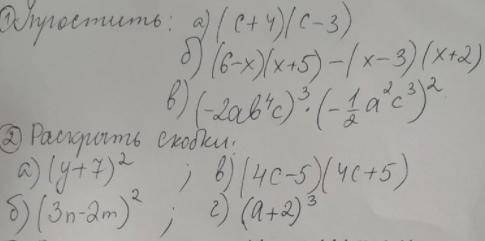 ① Упростить: а) (c+4)(c-3)
б) (6-x)(x+5) - (x-3)(x+2)
в) (-2ab⁴c)³ · (-1/2 a²c³)²
② Раскрыть скобки:
а) (y+7)² ; в) (4c-5)(4c+5)
б) (3n-2m)² ; г) (a+2)³